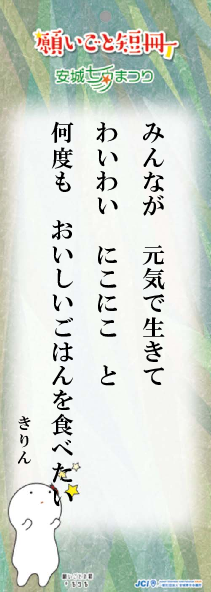 願いごと短冊
安城七夕まつり
みんなが　元気で生きて
わいわい　にこにこ　と
何度も　おいしいごはんを食べたい
きりん
JCI